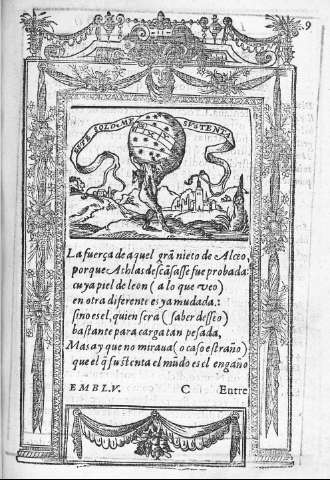 9
ESTE SOLO ME SVSTENTA
La fuerça de aquel grā nieto de Alceo,
porque Athlas descāsasse fue probada:
cuya piel de leon (a lo que veo)
en otra diferente es ya mudada,:
sino es el, quien sera (saber desseo)
bastante para carga tan pesada,
Mas ay que no miraua (o caso estraño)
que el q̄ sustenta el mūdo es el engaño
EMBL V. C Entre